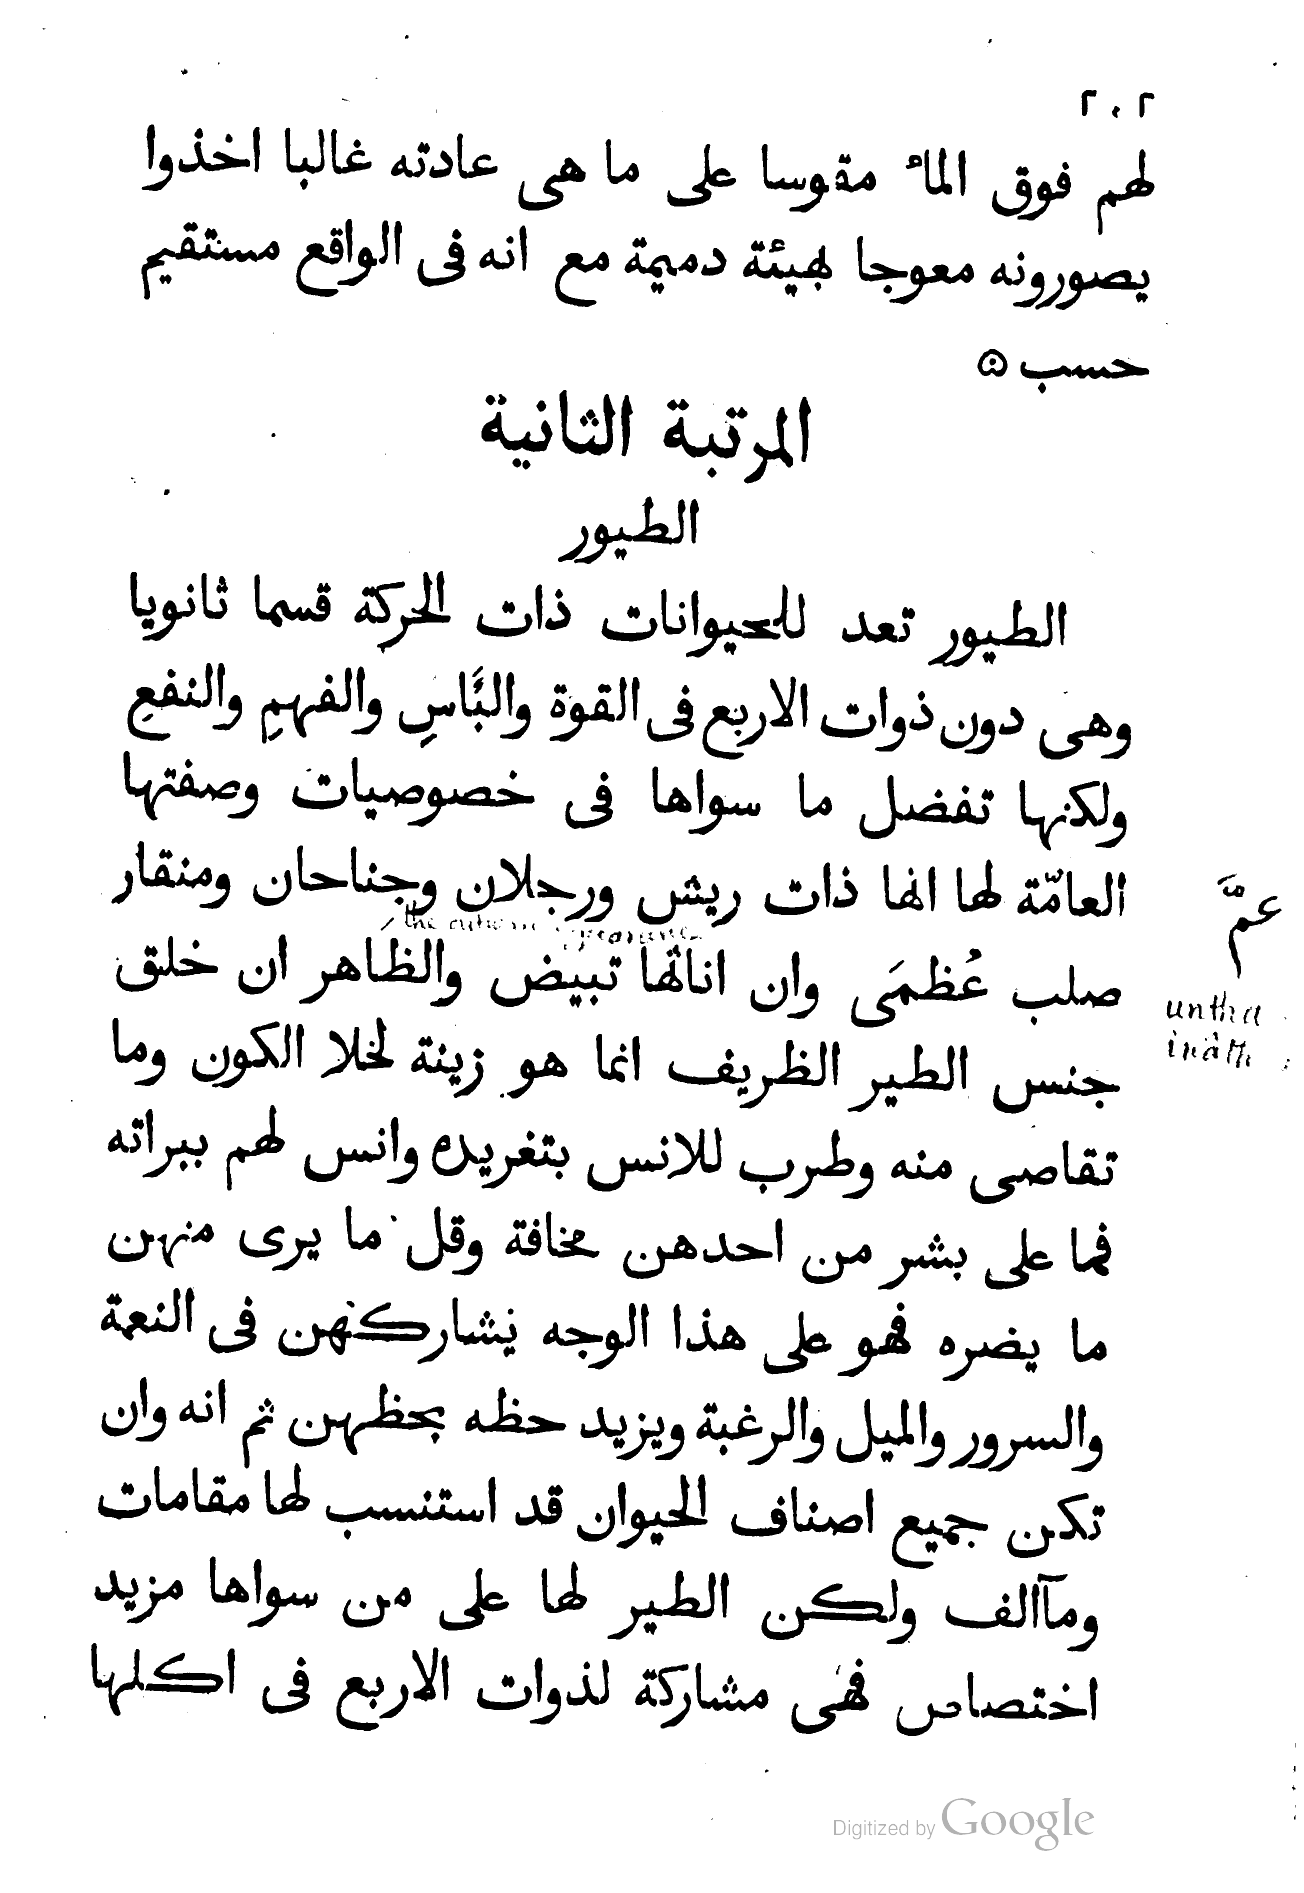 ٢٠٢
لهم فوق المآء مقوسا على ما هى عادته غالبا اخذوا
يصورونه معوجا بهيئة دميمة مع انه فى الواقع مستقيم
حسب ۞
المرتبة الثانية
الطيور
الطيور تعد للحيوانات ذات الحركة قسما ثانويا
وهى دون ذوات الاربع فى القوة والبَّاسِ والفهمِ والنفعِ
ولكنها تفضل ما سواها فى خصوصيات وصفتها
العامّة لها انها ذات ريش ورجلان وجناحان ومنقار
عمّ
the outward appearance
صلب عُظمَى وان اناثها تبيض والظاهر ان خلق
untha
inâth
جنس الطير الظريف انما هو زينة لخلا الكون وما
تقاصى منه وطرب للانس بتغريده وانس لهم ببراته
فما على بشر من احدهن مخافة وقل ما يرى منهن
ما يضره فهو على هذا الوجه يشاركنهن فى النعمة
والسرور والميل والرغبة ويزيد حظه بحظهن ثم انه وان
تكن جميع اصناف الحيوان قد استنسب لها مقامات
ومآالف ولكن الطير لها على من سواها مزيد
اختصاص فهى مشاركة لذوات الاربع فى اكلها
Digitized by Google